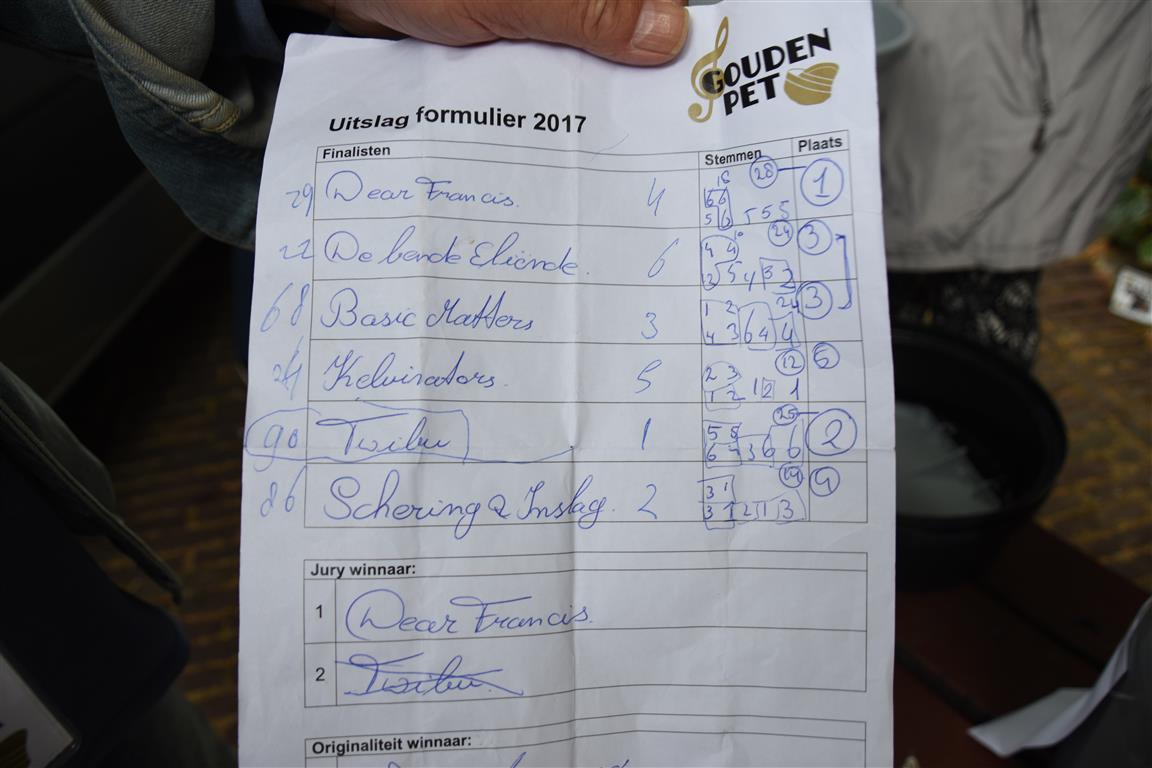 GOUDEN
PET
Uitslag formulier 2017
Finalisten Stemmen Plaats
29 Dear Francis. 4 18 28 1
66
56 5 5 5
22 De bende Eliënde. 6 4 4 24 3
5 4 3 2
68 Basic Matters 3 1 2 3
4 3 6 4 4
24 Kelvinators. 5 2 3 12
1 2 1 2 1
90 Twibu 1 5 5 25 2
6 3 6 6
86 Schering & Inslag. 2 3 1
3 1 2 1 3
Jury winnaar:
1 Dear Francis.
2 Twibu.
Originaliteit winnaar: